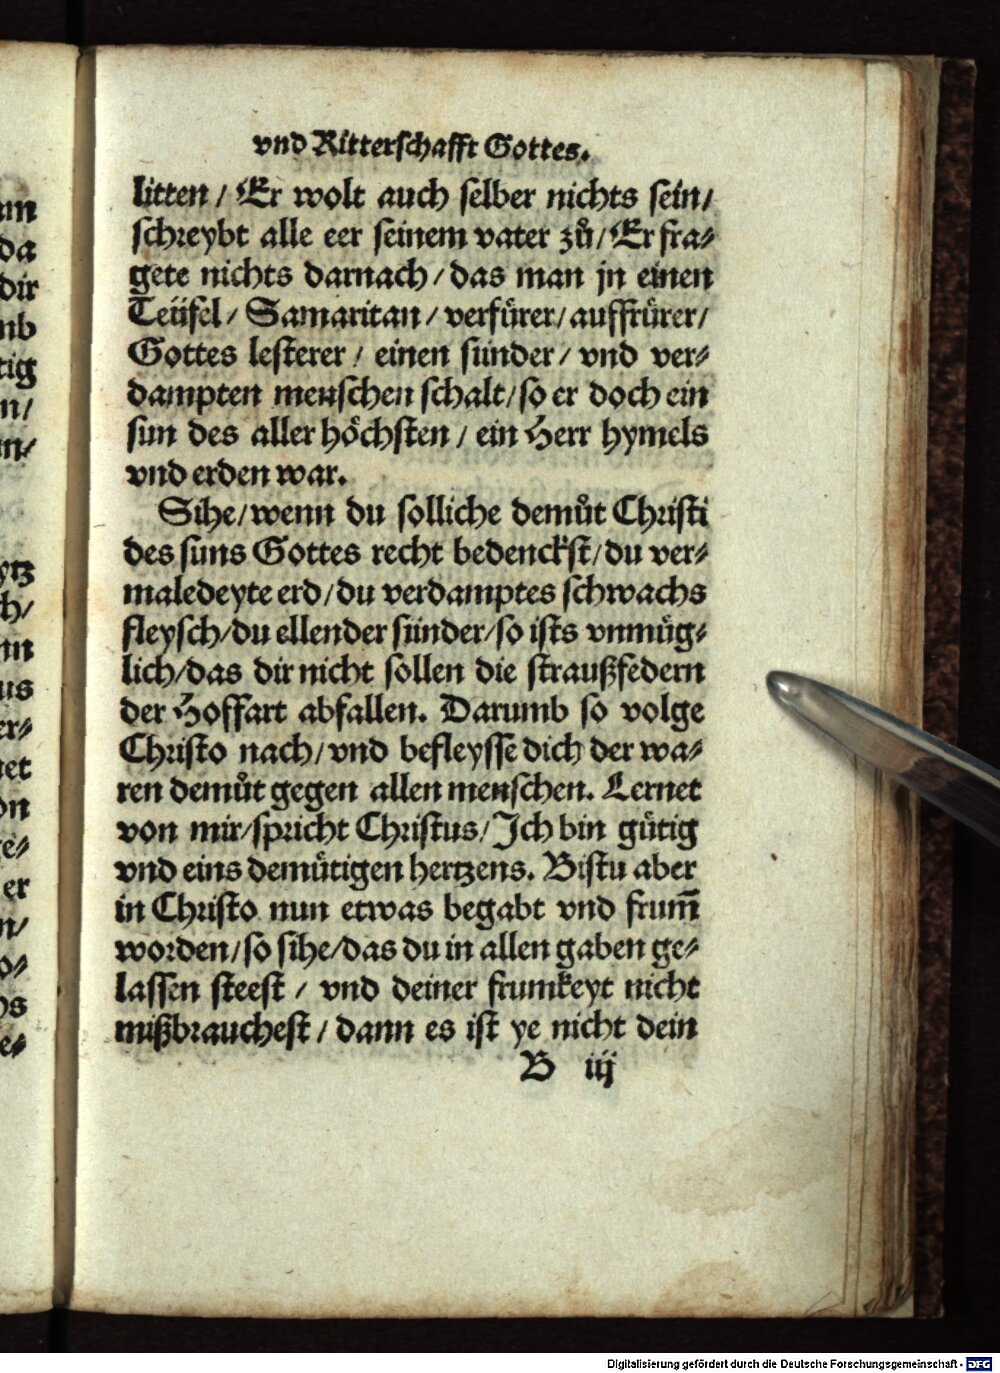 vnd Ritterschafft Gottes.
litten / Er wolt auch selber nichts sein/
schreybt alle eer seinem vater zů/ Er fra⸗
gete nichts darnach / das man jn einen
Teüfel/ Samaritan / verfürer/ auffrürer/
Gottes lesterer / einen sünder/ vnd ver⸗
dampten menschen schalt/ so er doch ein
sun des aller höchsten / ein Herr hymels
vnd erden war.
Sihe/ wenn du solliche demůt Christi
des suns Gottes recht bedenckst/ du ver⸗
maledeyte erd/ du verdamptes schwachs
fleysch/ du ellender sünder/ so ists vnmüg⸗
lich/ das dir nicht sollen die straußfedern
der Hoffart abfallen. Darumb so volge
Christo nach/ vnd befleysse dich der wa⸗
ren demůt gegen allen menschen. Lernet
von mir/ spricht Christus/ Ich bin gütig
vnd eins demütigen hertzens. Bistu aber
in Christo nun etwas begabt vnd frum̄
worden/ so sihe/ das du in allen gaben ge⸗
lassen steest / vnd deiner frumkeyt nicht
mißbrauchest / dann es ist ye nicht dein
B iij
Digitalisierung gefördert durch die Deutsche Forschungsgemeinschaft - DFG